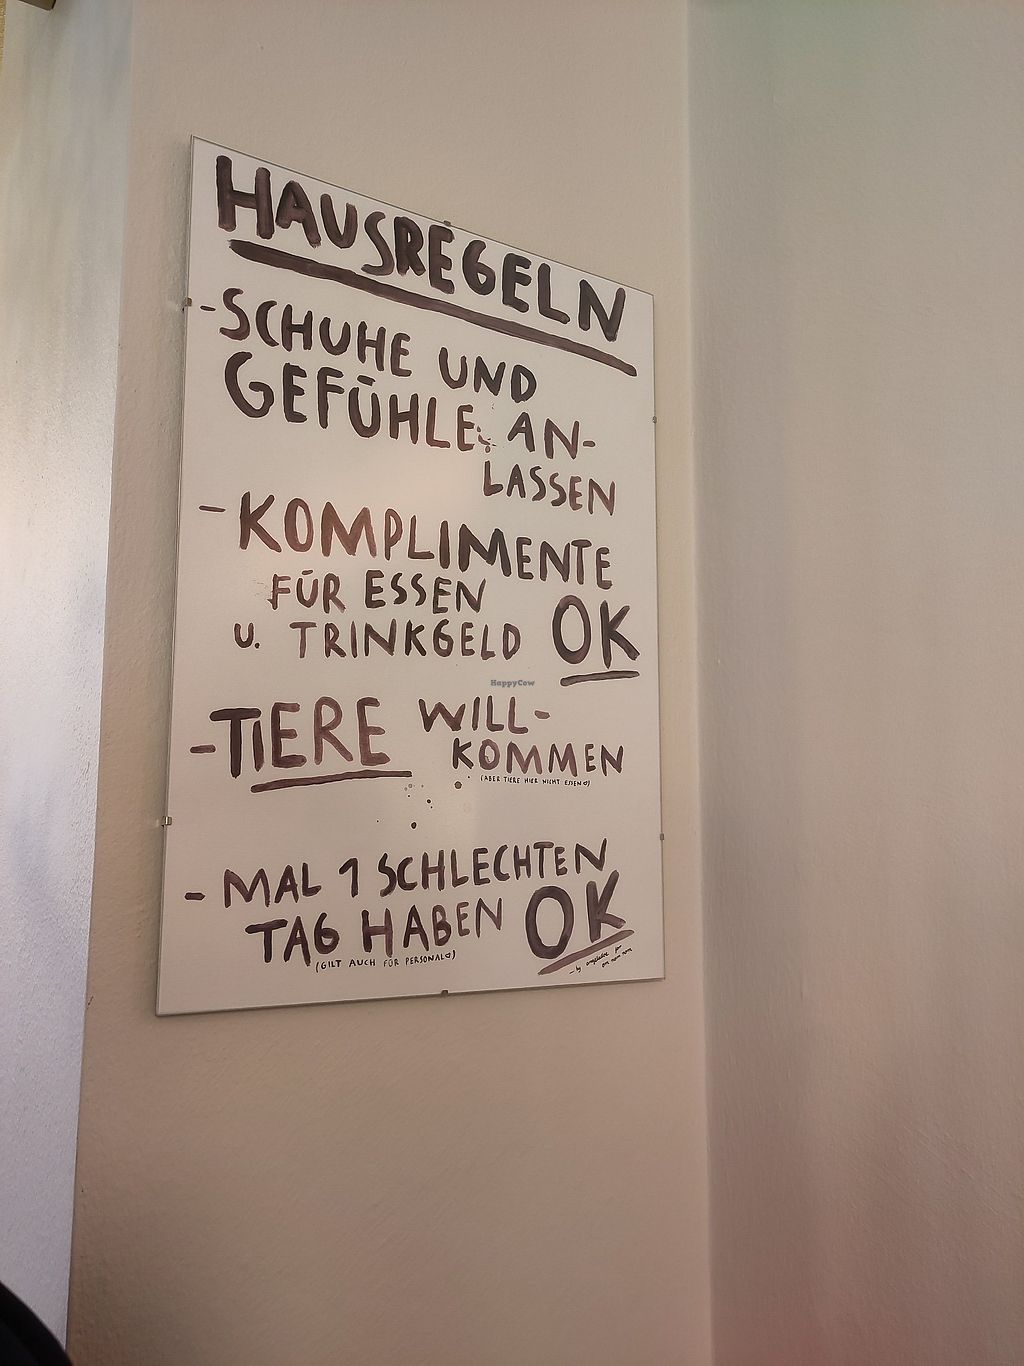 HAUSREGELN
- SCHUHE UND
GEFÜHLE AN-
LASSEN
- KOMPLIMENTE
FÜR ESSEN
U. TRINKGELD OK
HappyCow
- TIERE WILL-
KOMMEN
(ABER TIERE HIER NICHT ESSEN)
- MAL 1 SCHLECHTEN
TAG HABEN OK
(GILT AUCH FÜR PERSONAL)